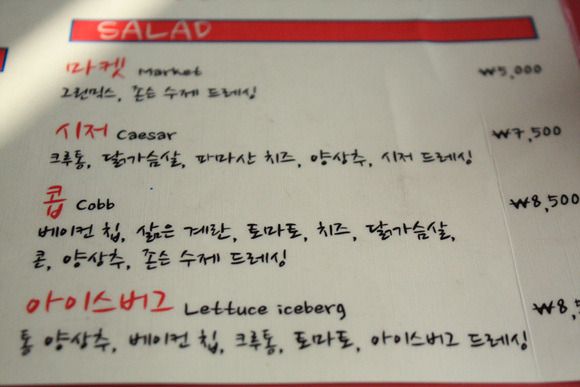 SALAD
마켓 Market ₩5,000
그린믹스, 존슨 수제 드레싱
시저 Caesar ₩7,500
크루통, 닭가슴살, 파마산 치즈, 양상추, 시저 드레싱
콥 Cobb ₩8,500
베이컨 칩, 삶은 계란, 토마토, 치즈, 닭가슴살,
콘, 양상추, 존슨 수제 드레싱
아이스버그 Lettuce iceberg ₩8,5
통 양상추, 베이컨 칩, 크루통, 토마토, 아이스버그 드레싱